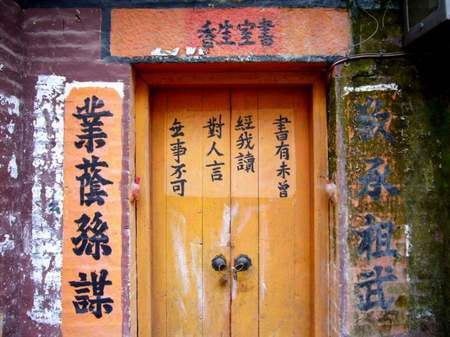 書室生香
敢承祖武
書有未曾
經我讀
無事不可
對人言
業蔭孫謀